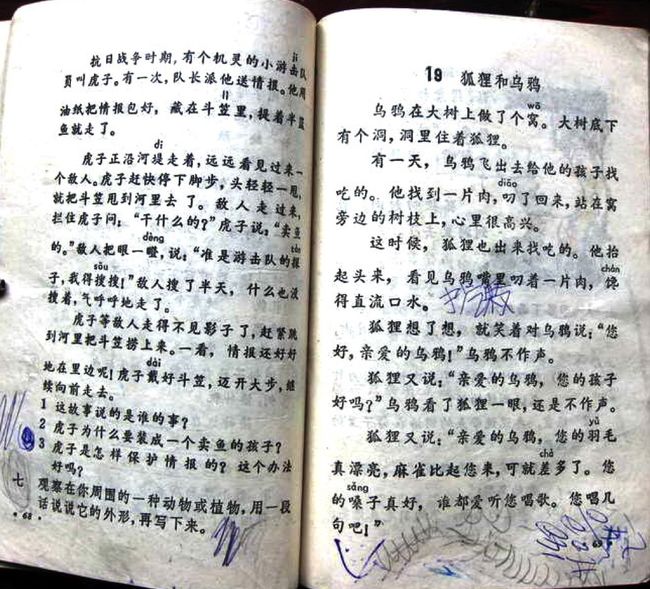 jī
抗日战争时期，有个机灵的小游击队
员叫虎子。有一次，队长派他送情报。他用
lì
油纸把情报包好，藏在斗笠里，提着半篮
鱼就走了。
dī
虎子正沿河堤走着，远远看见过来一
个敌人。虎子赶快停下脚步，头轻轻一甩，
就把斗笠甩到河里去了。敌人走过来，
拦住虎子问：“干什么的？”虎子说：“卖鱼
dèng tàn
的。”敌人把眼一瞪，说：“准是游击队的探
sōu
子，我得搜搜！”敌人搜了半天，什么也没
搜着，气呼呼地走了。
虎子等敌人走得不见影子了，赶紧跳
到河里把斗笠捞上来。一看，情报还好好
dài
地在里边呢！虎子戴好斗笠，迈开大步，继
续向前走去。
1 这故事说的是谁的事？
2 虎子为什么要装成一个卖鱼的孩子？
3 虎子是怎样保护情报的？这个办法
好吗？
七 观察在你周围的一种动物或植物，用一段
话说说它的外形，再写下来。
• 68 •
19 狐狸和乌鸦
wō
乌鸦在大树上做了个窝。大树底下
有个洞，洞里住着狐狸。
有一天，乌鸦飞出去给他的孩子找
diāo
吃的。他找到一片肉，叼了回来，站在窝
旁边的树枝上，心里很高兴。
这时候，狐狸也出来找吃的。他抬
chán
起头来，看见乌鸦嘴里叼着一片肉，馋
得直流口水。
狐狸想了想，就笑着对乌鸦说：“您
好，亲爱的乌鸦！”乌鸦不作声。
狐狸又说：“亲爱的乌鸦，您的孩子
好吗？”乌鸦看了狐狸一眼，还是不作声。
yǔ
狐狸又说：“亲爱的乌鸦，您的羽毛
chà
真漂亮，麻雀比起您来，可就差多了。您
sǎng
的嗓子真好，谁都爱听您唱歌。您唱几
句吧！”